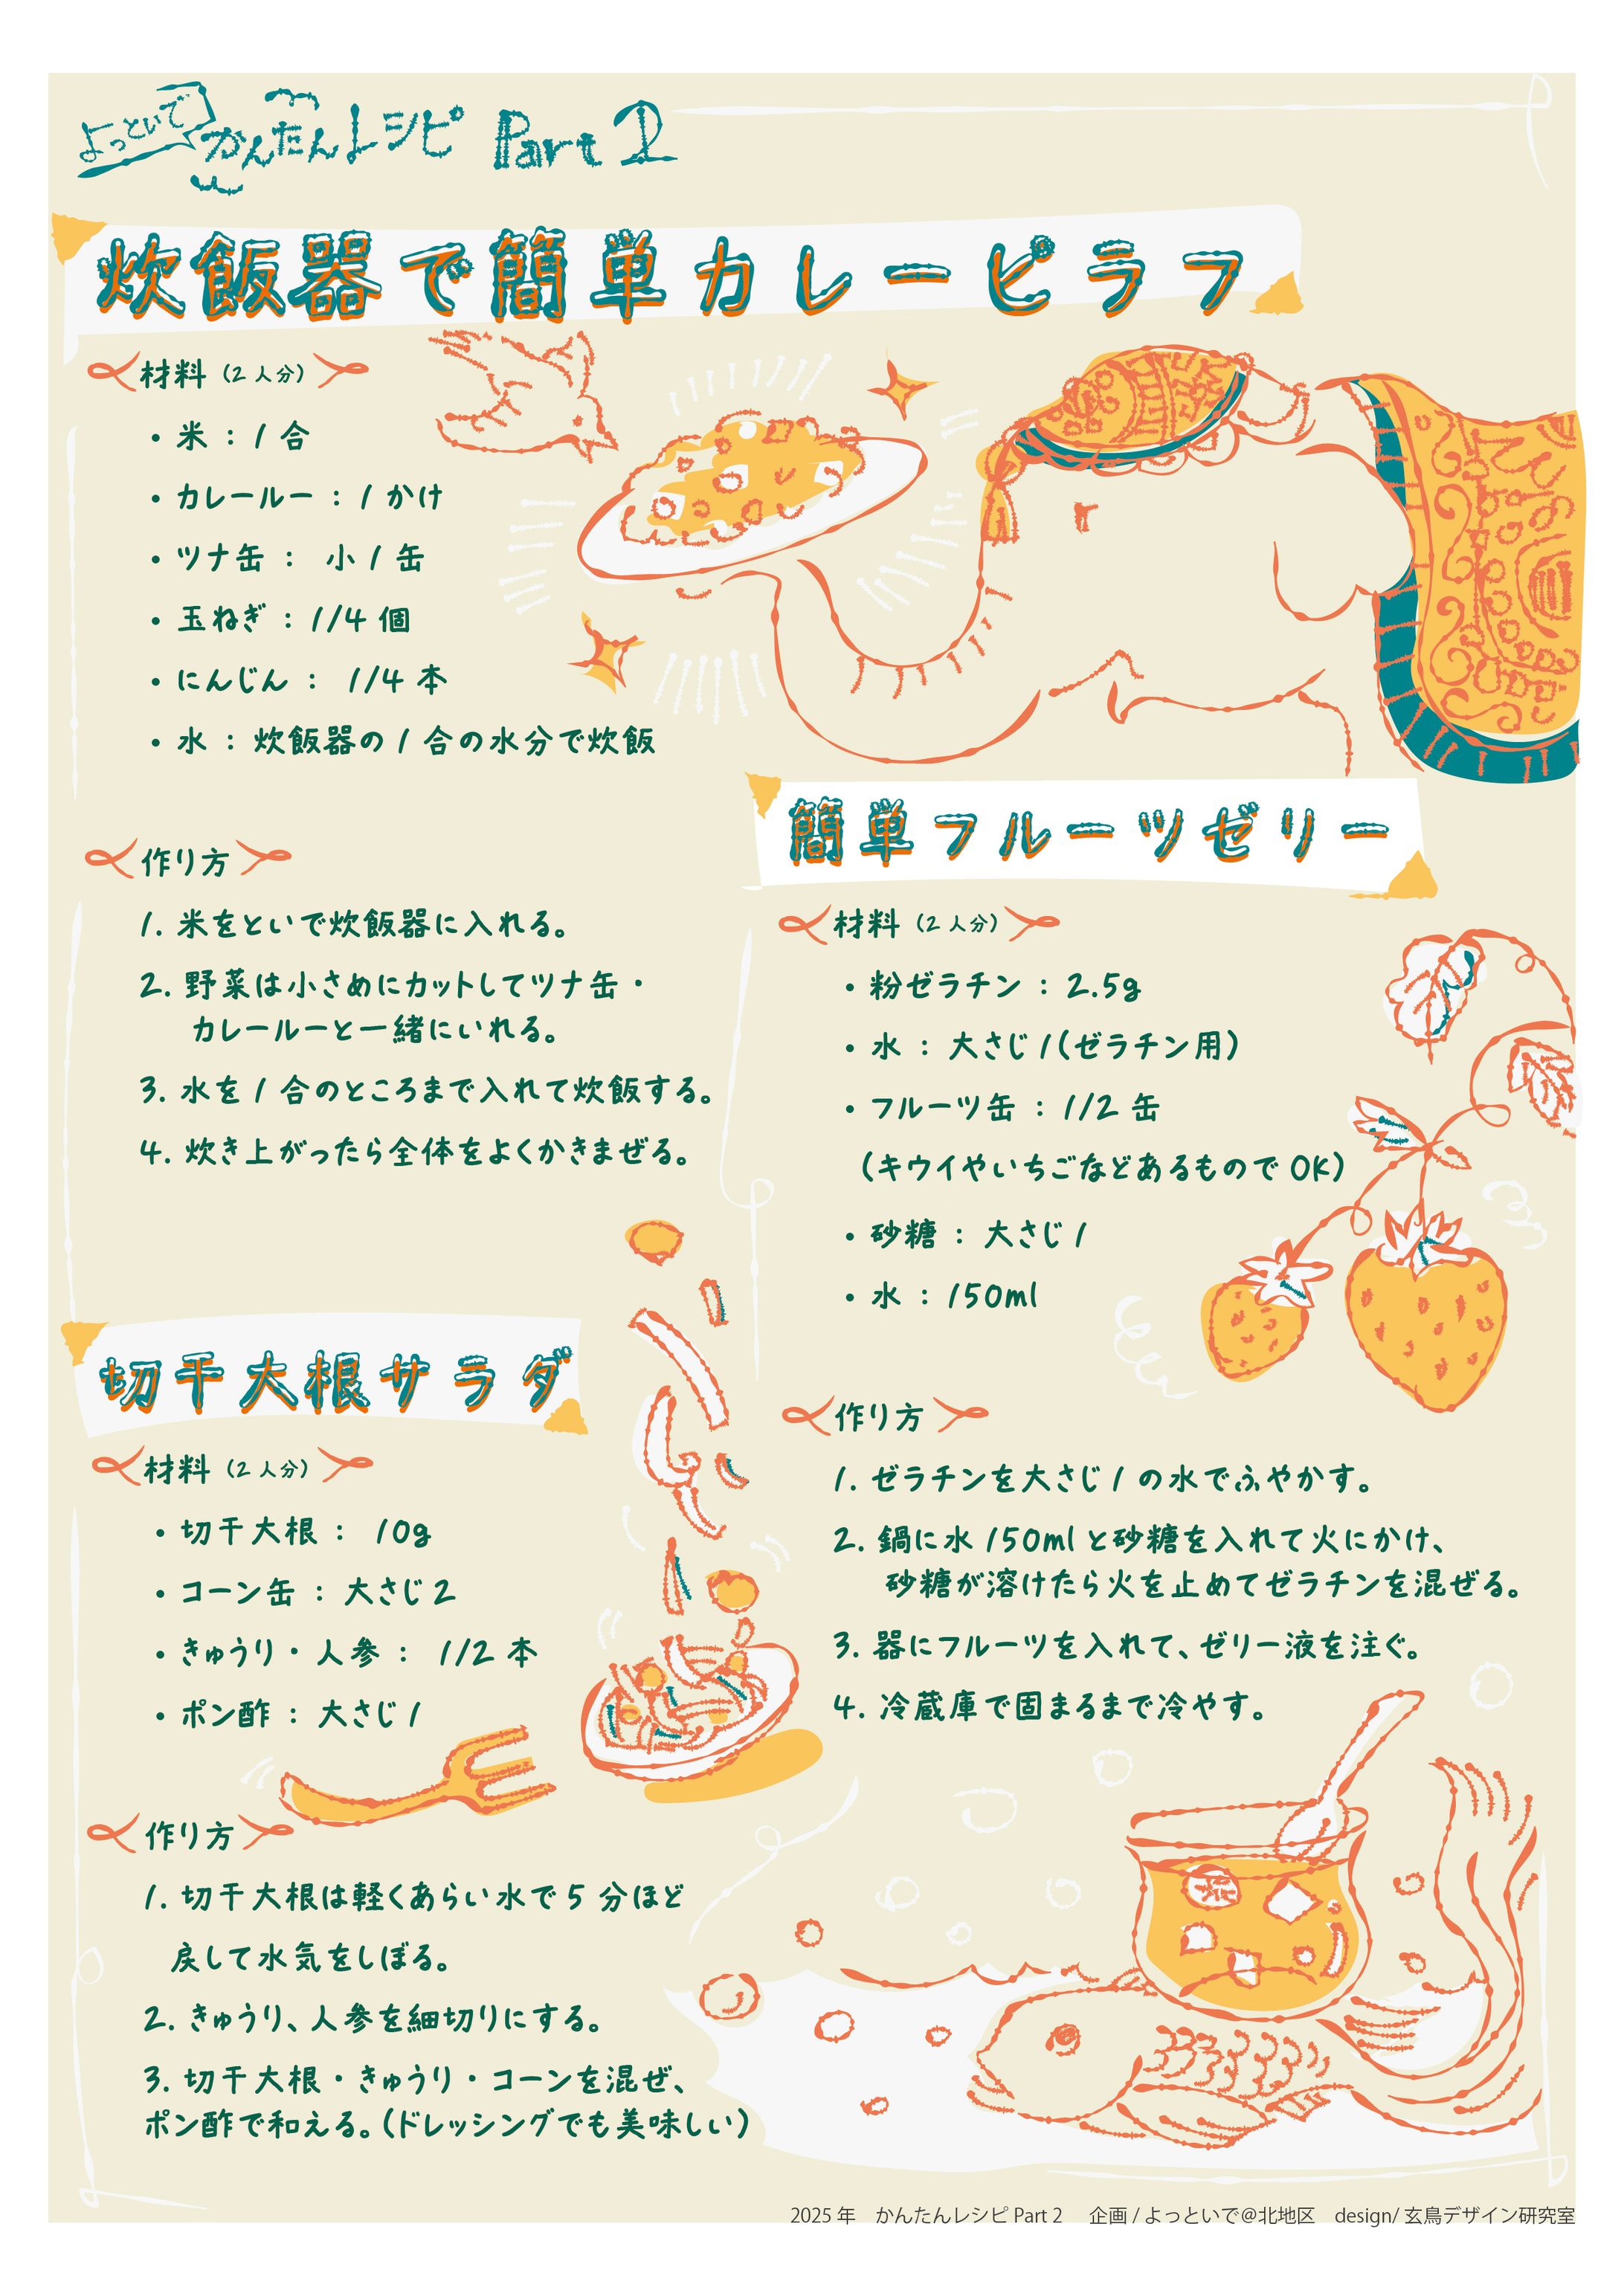 よっといで かんたんレシピ Part 2
炊飯器で簡単カレーピラフ
材料（2人分）
・米：1合
・カレールー：1かけ
・ツナ缶： 小1缶
・玉ねぎ：1/4個
・にんじん： 1/4本
・水：炊飯器の1合の水分で炊飯
作り方
1. 米をといで炊飯器に入れる。
2. 野菜は小さめにカットしてツナ缶・
カレールーと一緒にいれる。
3. 水を1合のところまで入れて炊飯する。
4. 炊き上がったら全体をよくかきまぜる。
切干大根サラダ
材料（2人分）
・切干大根： 10g
・コーン缶：大さじ2
・きゅうり・人参： 1/2本
・ポン酢：大さじ1
作り方
1. 切干大根は軽くあらい水で5分ほど
戻して水気をしぼる。
2. きゅうり、人参を細切りにする。
3. 切干大根・きゅうり・コーンを混ぜ、
ポン酢で和える。（ドレッシングでも美味しい）
簡単フルーツゼリー
材料（2人分）
・粉ゼラチン：2.5g
・水：大さじ1（ゼラチン用）
・フルーツ缶：1/2缶
（キウイやいちごなどあるものでOK）
・砂糖：大さじ1
・水：150ml
作り方
1. ゼラチンを大さじ1の水でふやかす。
2. 鍋に水150mlと砂糖を入れて火にかけ、
砂糖が溶けたら火を止めてゼラチンを混ぜる。
3. 器にフルーツを入れて、ゼリー液を注ぐ。
4. 冷蔵庫で固まるまで冷やす。
2025年 かんたんレシピ Part 2 企画/よっといで＠北地区 design/玄鳥デザイン研究室